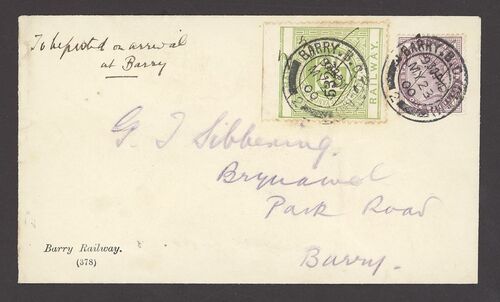 To be posted on arrival
at Barry
BARRY
RAILWAY.
BARRY
MY 23
00
G. J. Sibbering.
Brynawel
Park Road
Barry.
Barry Railway.
(378)